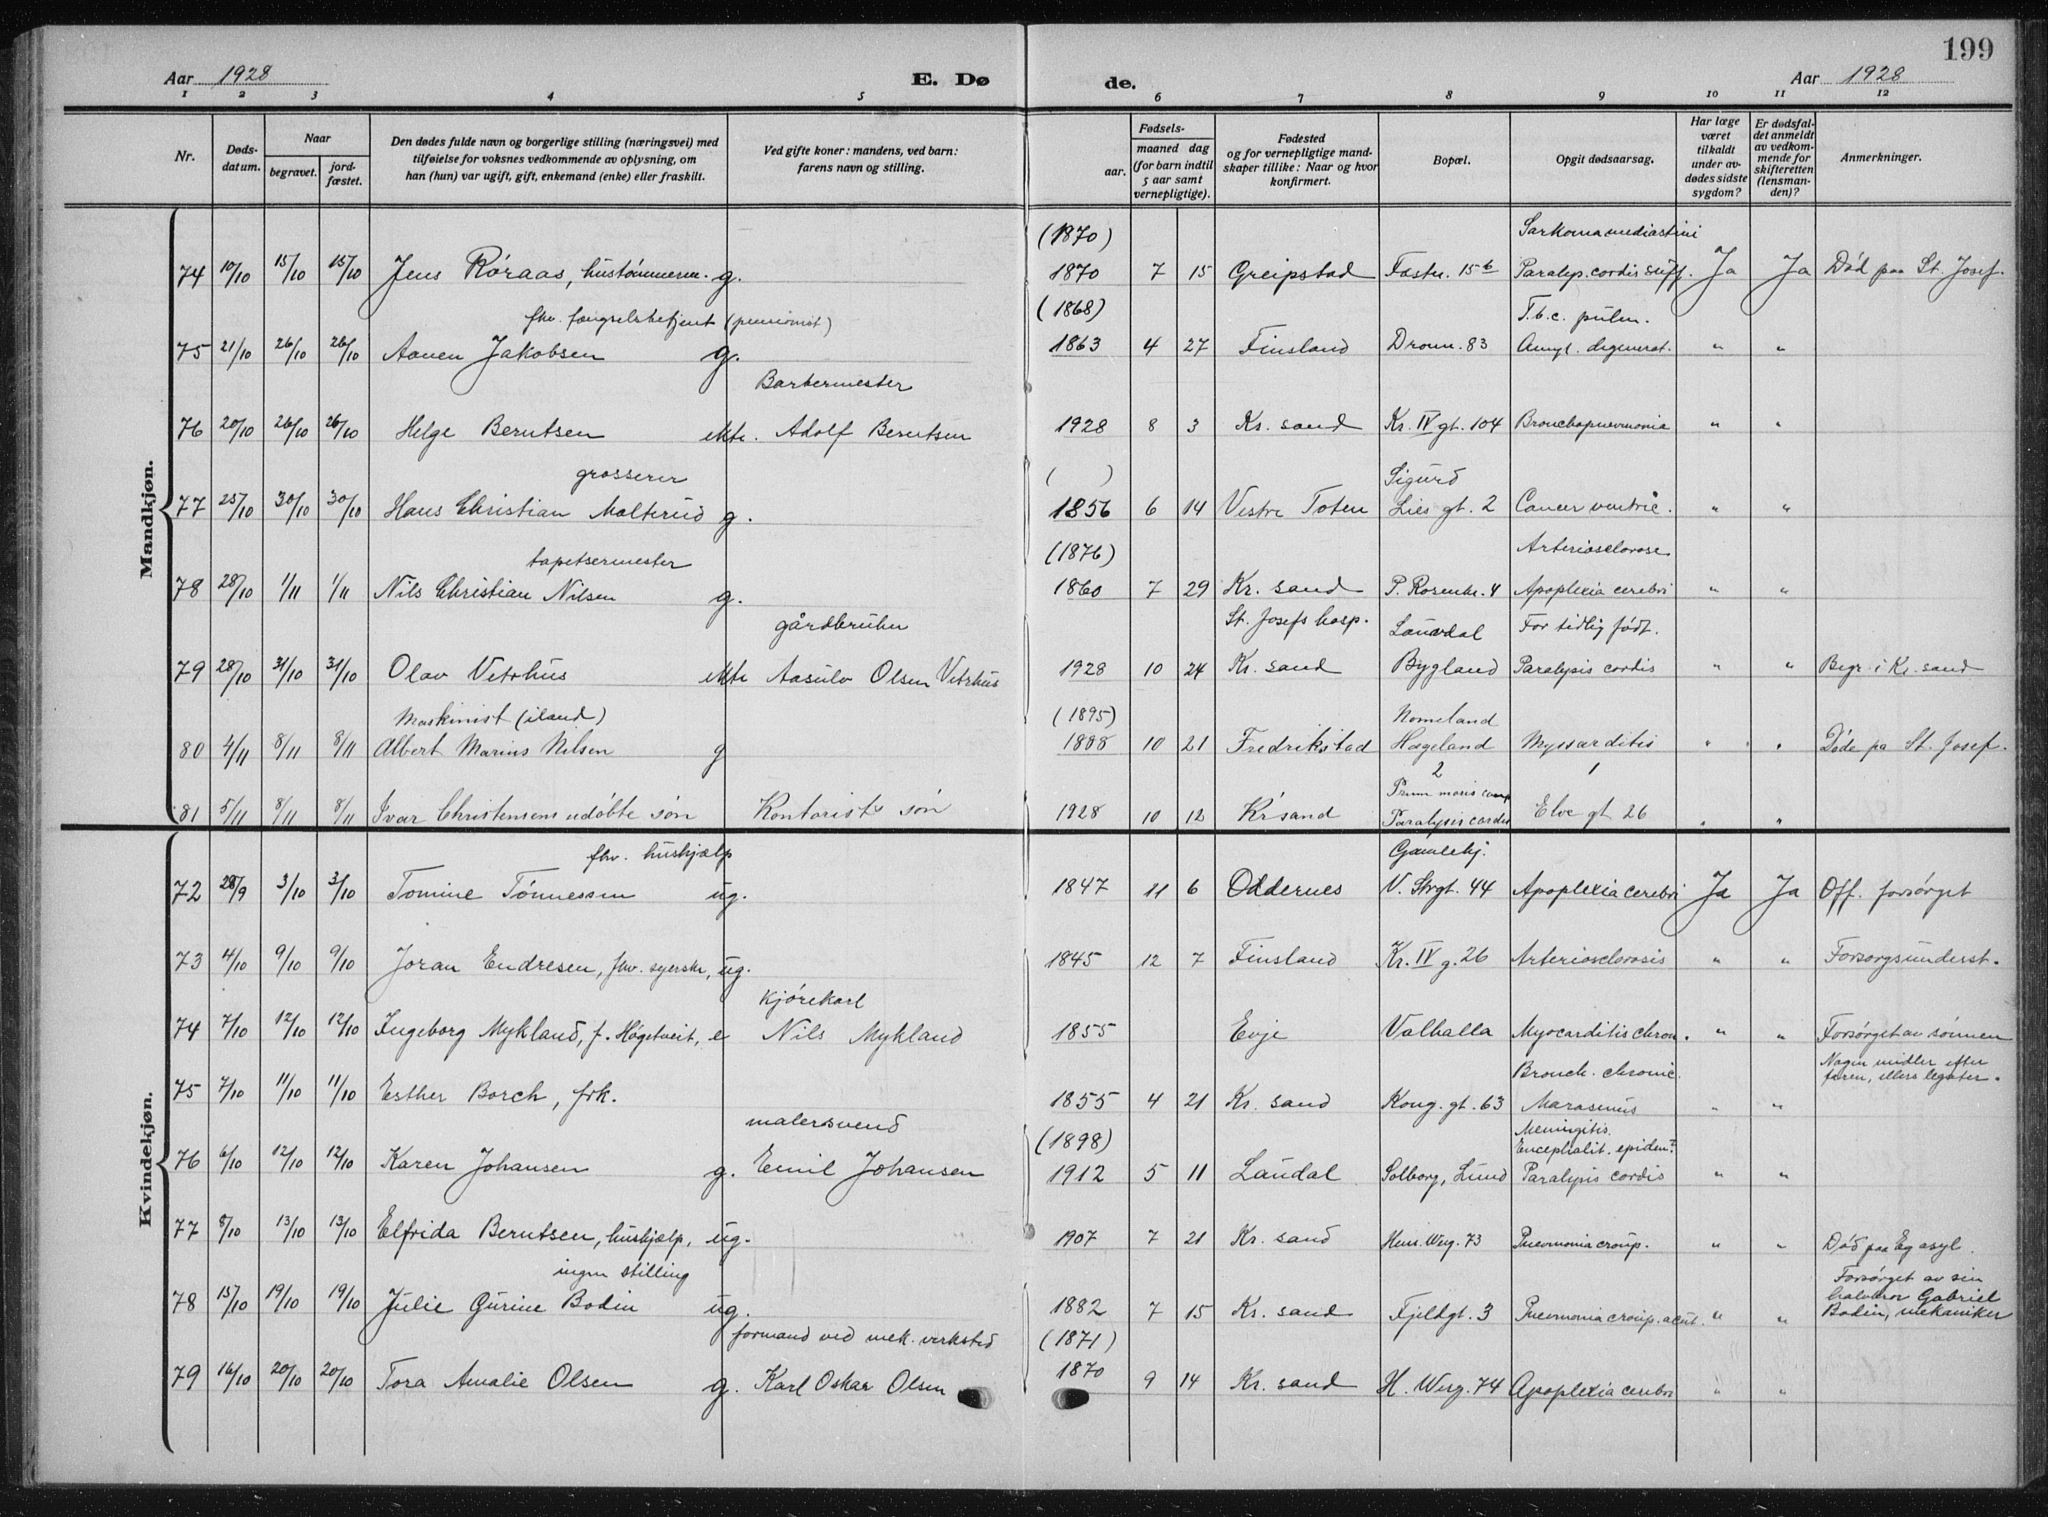 199
Aar 1928 E. Dø de. Aar 1928
1 2 3 4 5 6 7 8 9 10 11 12
Nr.
Døds-
datum.
Naar
begravet.
jord-
fæstet.
Den dødes fulde navn og borgerlige stilling (næringsvei) med
tilføielse for voksnes vedkommende av oplysning, om
han (hun) var ugift, gift, enkemand (enke) eller fraskilt.
Ved gifte koner: mandens, ved barn:
farens navn og stilling.
Fødsels-
aar.
maaned dag
(for barn indtil
5 aar samt
vernepligtige).
Fødested
og for vernepligtige mand-
skaper tillike: Naar og hvor
konfirmert.
Bopæl.
Opgit dødsaarsag.
Har læge
været
tilkaldt
under av-
dødes sidste
sygdom?
Er dødsfal-
det anmeldt
av vedkom-
mende for
skifteretten
(lensman-
den)?
Anmerkninger.
Mandkjøn.
(1870) Sarkoma mediastini
74 10/10 15/10 15/10 Jens Røraas, hustømmerm. g. 1870 7 15 Greipstad Festn. 15b Paralys. cordis suff. Ja Ja Død paa St. Josef.
fhv. fængselsbetjent (pensionist) (1868) T.b.c. pulm.
75 21/10 26/10 26/10 Aanen Jakobsen g. 1863 4 27 Finsland Dronn. 83 Amyl. degenerat. " "
Barbermester
76 20/10 26/10 26/10 Helge Berntsen ekte. Adolf Berntsen 1928 8 3 Kr. sand Kr. IV gt. 104 Bronchopneumonia " "
grosserer ( ) Sigurd
77 25/10 30/10 30/10 Hans Christian Malterud g. 1856 6 14 Vestre Toten Lies gt. 2 Cancer ventric. " "
tapetsermester (1876) Arteriosclerose
78 28/10 1/11 1/11 Nils Christian Nilsen g. 1860 7 29 Kr. sand P. Rosenkr. 4 Apoplexia cerebri " "
gårdbruker St. Josefs hosp. Lauvdal For tidlig født.
79 28/10 31/10 31/10 Olav Vetrhus ekte Aasulv Olsen Vetrhus 1928 10 24 Kr. sand Bygland Paralysis cordis " " Begr. i Kr. sand
Maskinist (iland) (1895) Homeland
80 4/11 8/11 8/11 Albert Marius Nilsen g 1888 10 21 Fredrikstad Hægeland Myocarditis " " Døde pa St. Josef.
2 1
81 5/11 8/11 8/11 Ivar Christensens udøbte søn Kontorists søn 1928 10 12 Kr.sand Paralysis cordis Elve gt 26 " "
Kvindekjøn.
fhv. hushjælp Gamlehj.
72 28/9 3/10 3/10 Tomine Tønnessen ug. 1847 11 6 Oddernes V. Strgt. 44 Apoplexia cerebri Ja Ja Off. forsørget
73 4/10 9/10 9/10 Joran Endresen, fhv. syerske, ug. 1845 12 7 Finsland Kr. IV g. 26 Arteriosclerosis " " Forsorgsunderst.
kjørekarl
74 7/10 12/10 12/10 Ingeborg Mykland, f. Høgetveit, e Nils Mykland 1855 Evje Valhalla Myocarditis chron. " " Forsørget av sønnen
Bronch. chronic. Nogen midler efter
75 7/10 11/10 11/10 Esther Borch, frk. 1855 4 21 Kr. sand Kong. gt. 63 Marasmus " " faren, ellers legater.
malersvend (1898) Meningitis.
Encephalit. epidem?
76 6/10 12/10 12/10 Karen Johansen g. Emil Johansen 1912 5 11 Laudal Solborg, Lund Paralysis cordis " "
77 8/10 13/10 13/10 Elfrida Berntsen, hushjælp, ug. 1907 7 21 Kr. sand Hens. Werg. 73 Pneumonia croup. " " Død paa Eg asyl.
ingen stilling Forsørget av sin
halvbror Gabriel
78 15/10 19/10 19/10 Julie Gurine Bodin ug. 1882 7 15 Kr. sand Fjeldgt. 3 Pneumonia croup. acut. " " Bodin, mekaniker
formand ved mek. verksted (1871)
79 16/10 20/10 20/10 Tora Amalie Olsen g. Karl Oskar Olsen 1870 9 14 Kr. sand H. Werg. 74 Apoplexia cerebri " "